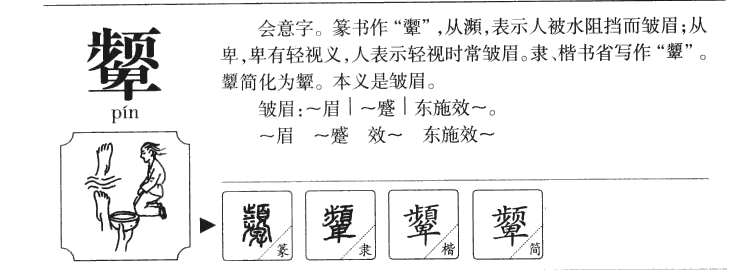 颦
pín
会意字。篆书作“顰”,从瀕,表示人被水阻挡而皱眉;从
卑,卑有轻视义,人表示轻视时常皱眉。隶、楷书省写作“顰”。
顰简化为颦。本义是皱眉。
皱眉:～眉|～蹙|东施效～。
～眉 ～蹙 效～ 东施效～
篆
顰 隶
顰 楷
颦 简